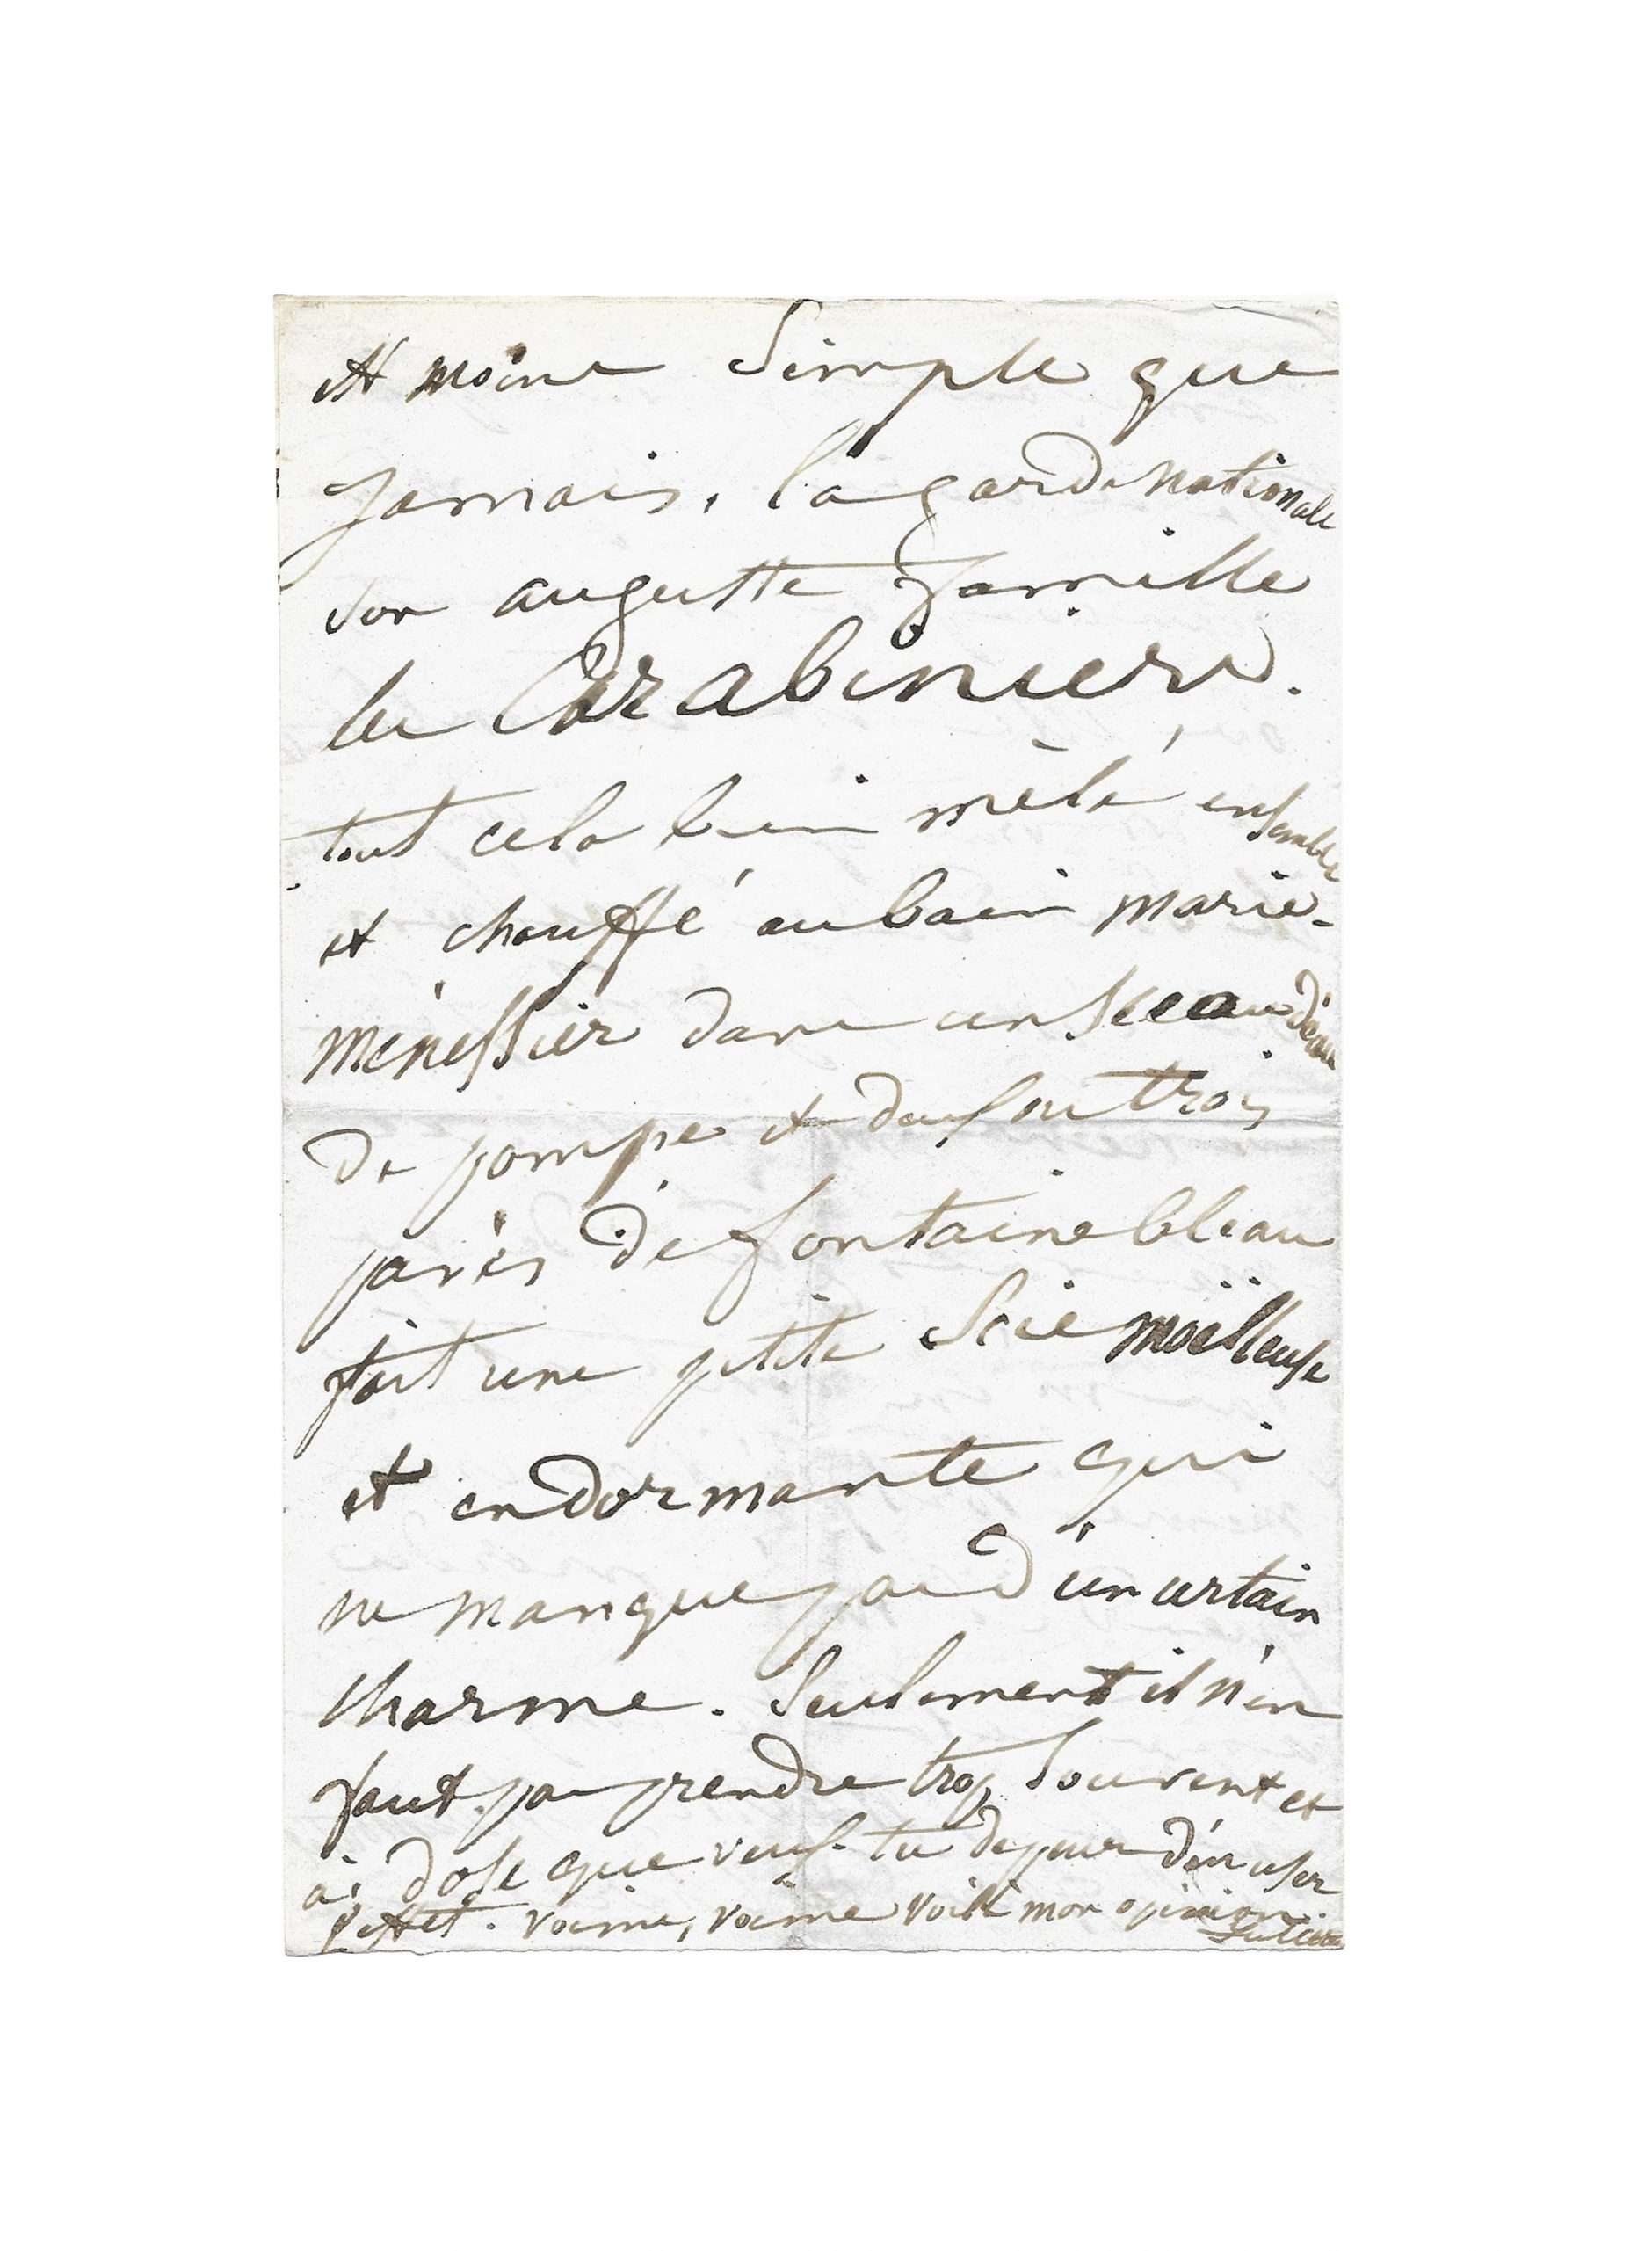 et moins simple que
jamais, la garde nationale
son auguste famille
les Carabiniers.
tout cela bien mèlé ensemble
et chauffé au bain marie-
ménessier dans un sceau d'eau
de pompe et deux ou trois
pavés de fontainebleau
fait une petite scie moëlleuse
et endormante qui
ne manque pas d'un certain
charme. Seulement il n'en
faut pas prendre trop souvent et
à dose que veux-tu de peur d'en user
l'effet. voime, voime voilà mon opinion.
Juliette